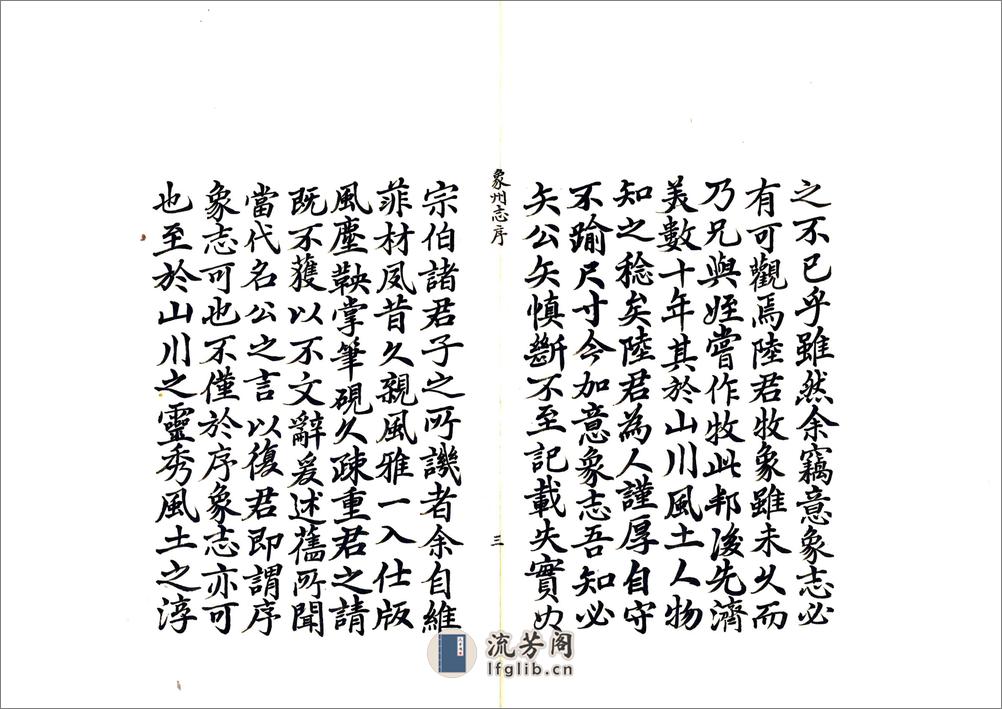 之不已乎雖然余竊意象志必
有可觀焉陸君牧象雖未久而
乃兄與姪嘗作牧此邦後先濟
美數十年其於山川風土人物
知之稔矣陸君為人謹厚自守
不踰尺寸今加意象志吾知必
矢公矢慎斷不至記載失實如
象州志序
三
宗伯諸君子之所譏者余自維
菲材夙昔久親風雅一入仕版
風塵鞅掌筆硯久疎重君之請
既不獲以不文辭爰述舊所聞
當代名公之言以復君即謂序
象志可也不僅於序象志亦可
也至於山川之靈秀風土之淳
流芳阁
lfglib.cn